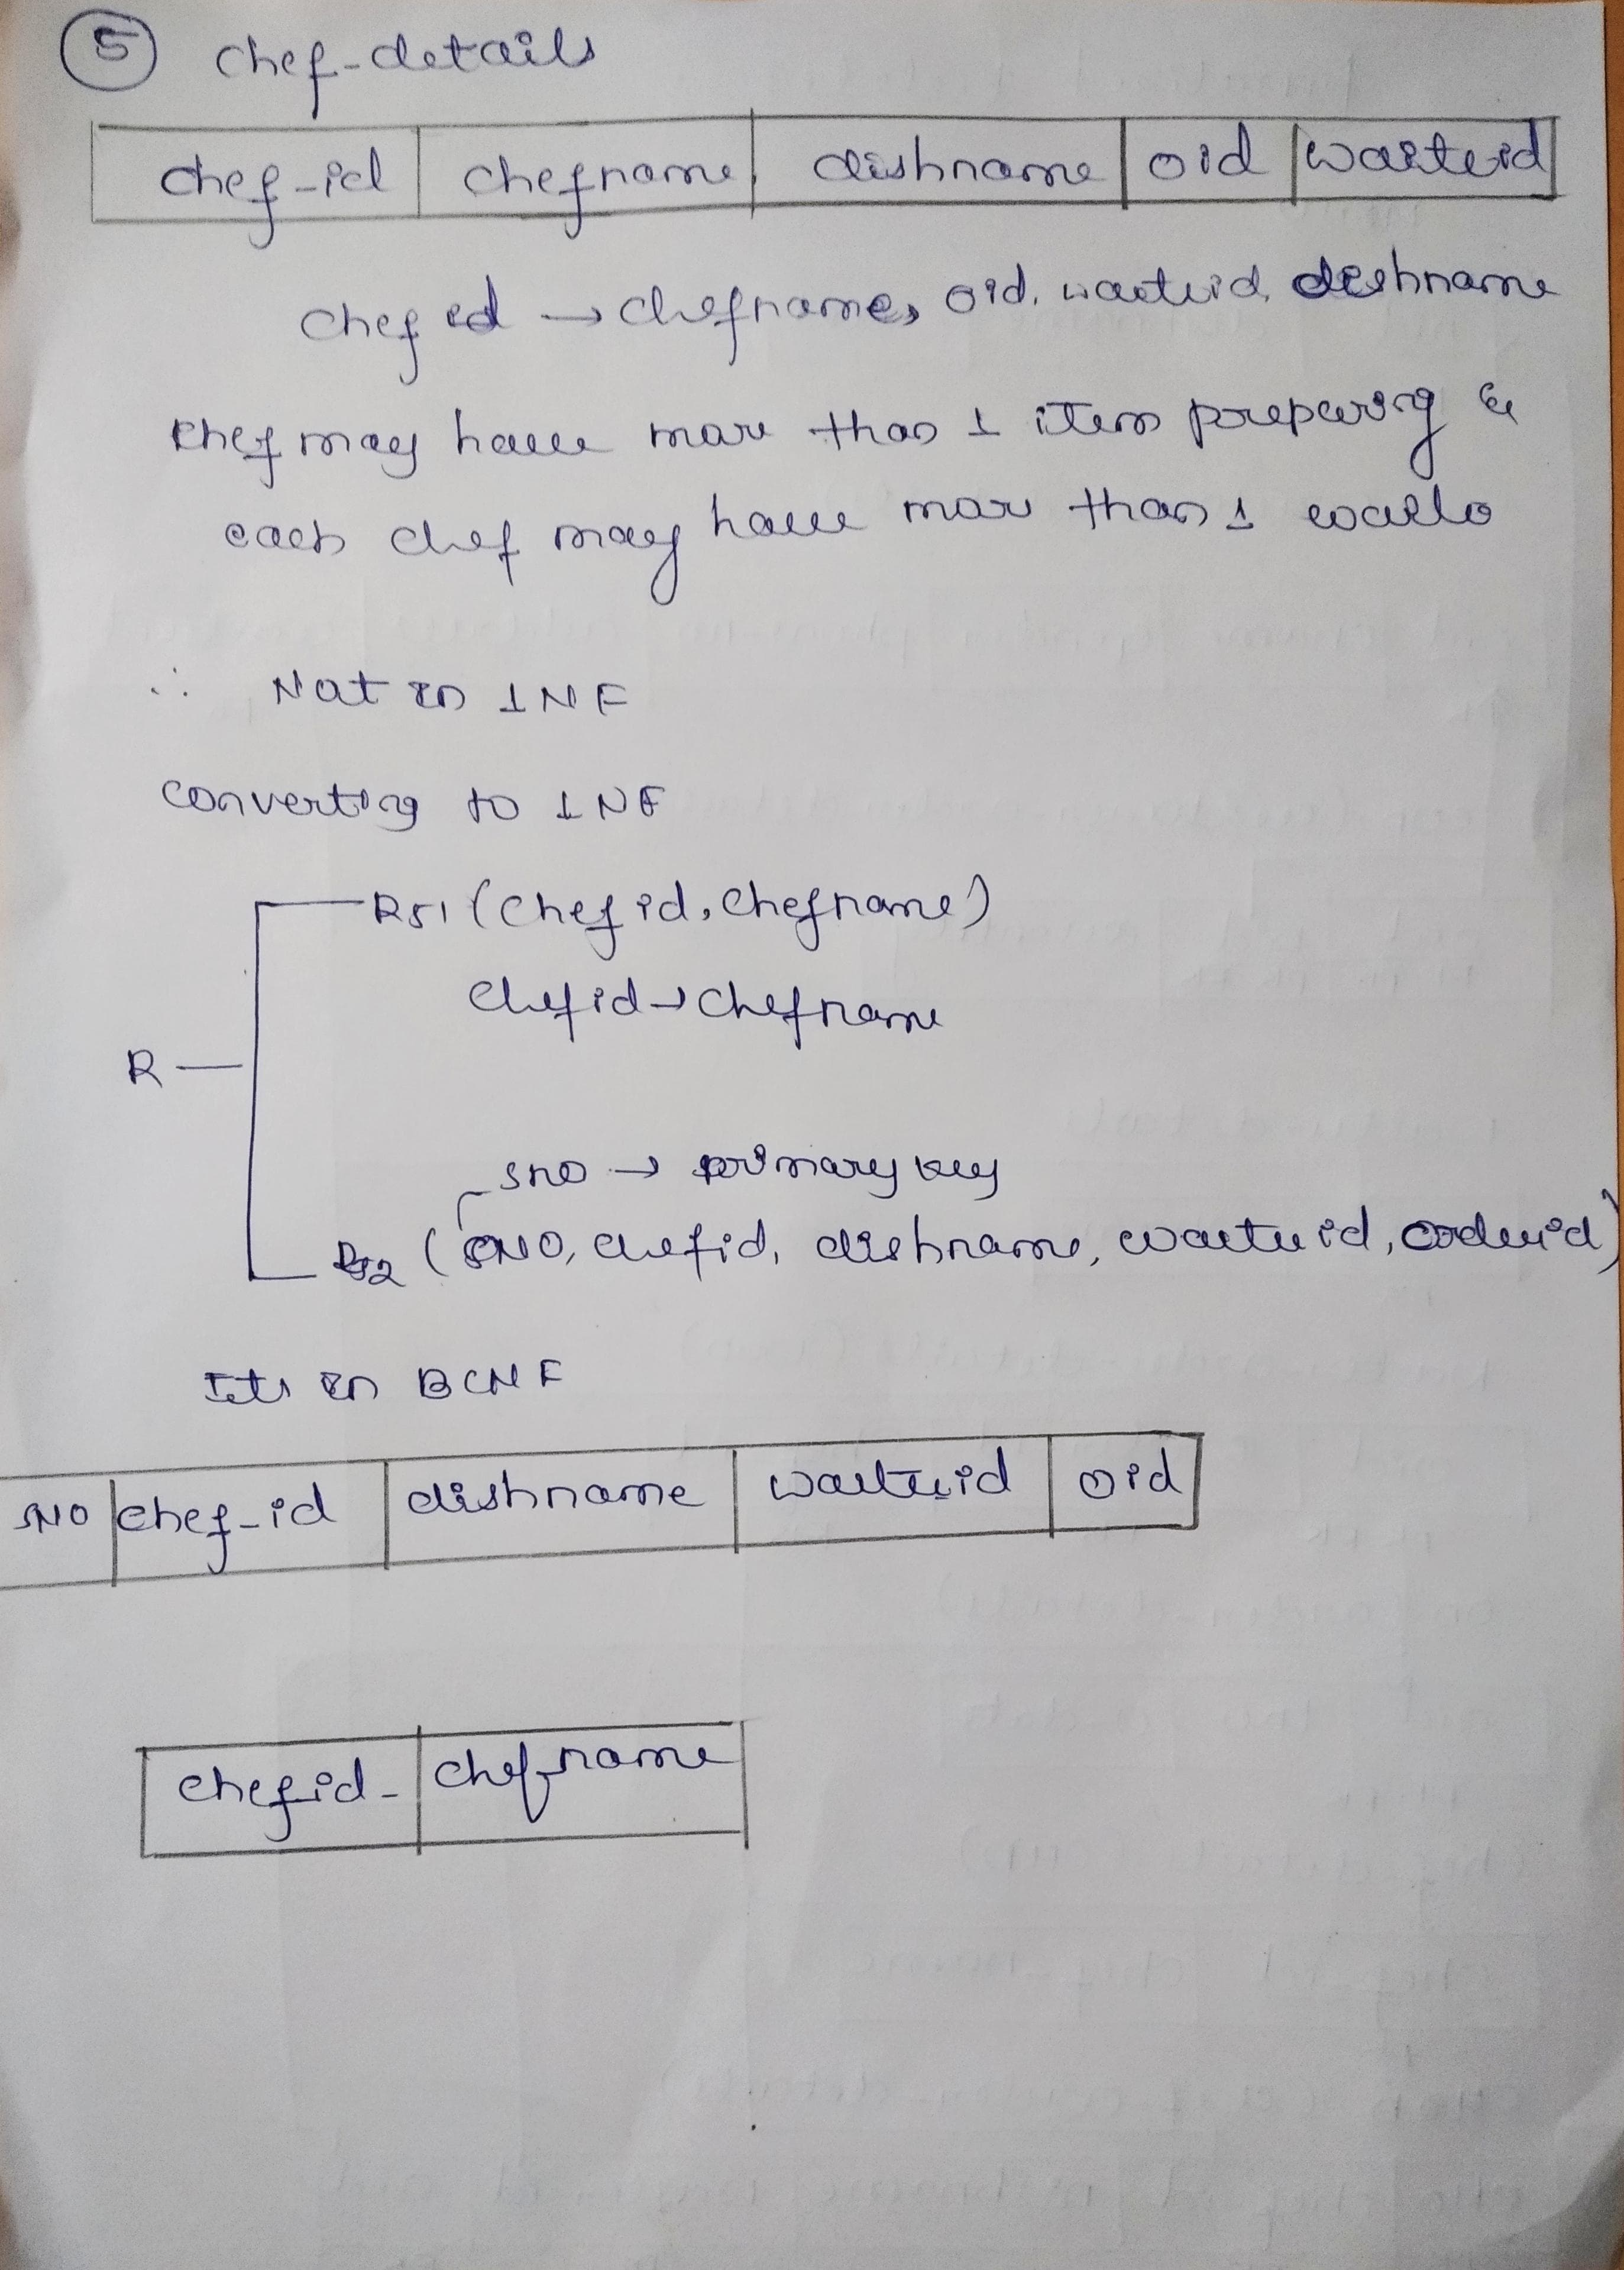 5 chef-details
chef-id chefname dishname oid waiterid
chef id → chefname, oid, waiterid, dishname
chef may have more than 1 item preparing &
each chef may have more than 1
∴ Not in 1NF
converting to 1NF
R51 (chef id, chefname)
chefid → chefname
R
sno → primary key
R52 (SNO, chefid, dishname, waiterid, orderid)
Its in BCNF
SNO chef-id dishname waiterid oid
chefid chefname